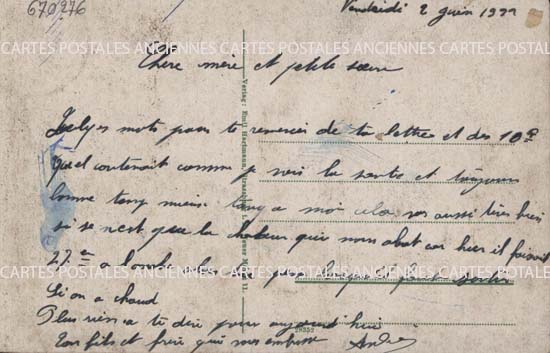 670276
Vendredi 2 Juin 1922
CARTES POSTALES ANCIENNES CARTES POSTALES ANCIENNES CARTES POSTALES ANCIENNES
Chère mère et petite sœur
Quelques mots pour te remercier de ta lettre et des 10 F
quel contenait comme je vois la santé et toujours
bonne tant mieux quand a moi cela va aussi très bien
si se n'est que la chaleur qui nous abat car hier il faisait
27 a
CARTES POSTALES ANCIENNES CARTES POSTALES ANCIENNES CARTES POSTALES ANCIENNES
Si on a chaud
Plus rien a te dire pour aujourd hui
Ton fils et frère qui vous embrasse André
Verlag: Emil Hartmann,
38352